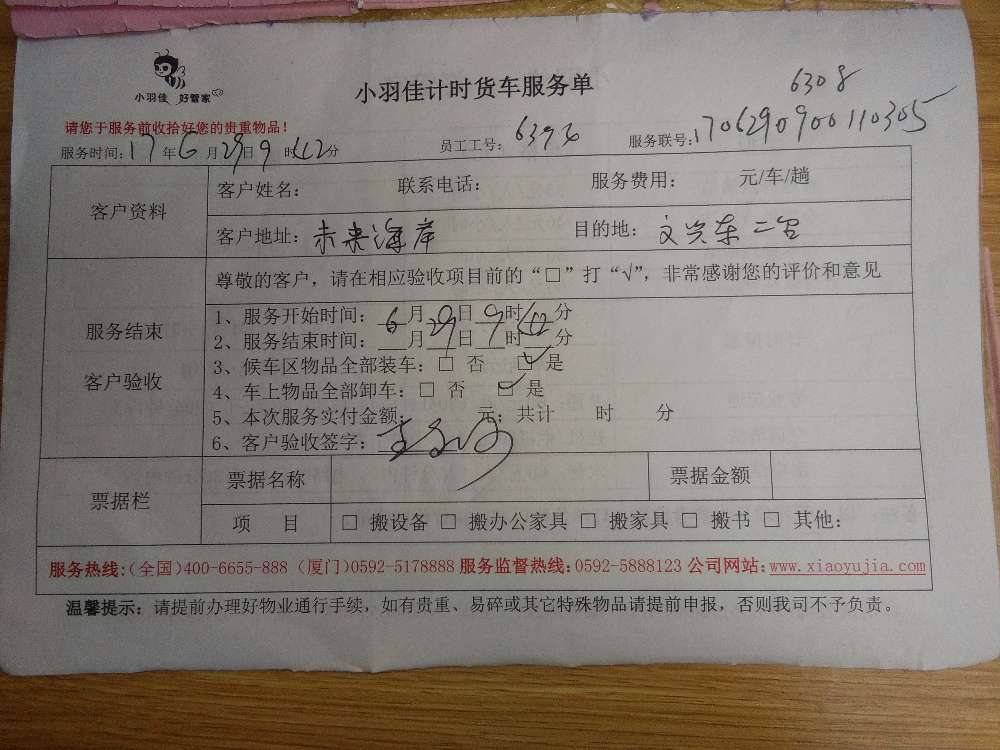 小羽佳 好管家
小羽佳计时货车服务单
6308
请您于服务前收拾好您的贵重物品！
服务时间：17年6月29日9时 分 员工工号： 服务联号：1706290900110305
客户资料
客户姓名： 联系电话： 服务费用： 元/车/趟
客户地址：未来海岸 目的地：文兴东二
尊敬的客户，请在相应验收项目前的“□”打“√”，非常感谢您的评价和意见
服务结束
客户验收
1、服务开始时间：6月29日9时 分
2、服务结束时间：__月__日__时__分
3、候车区物品全部装车：□ 否 ☑ 是
4、车上物品全部卸车：□ 否 ☑ 是
5、本次服务实付金额： 元；共计 时 分
6、客户验收签字：
票据栏
票据名称 票据金额
项 目 □ 搬设备 □ 搬办公家具 □ 搬家具 □ 搬书 □ 其他：
服务热线：（全国）400-6655-888（厦门）0592-5178888 服务监督热线：0592-5888123 公司网站：www.xiaoyujia.com
温馨提示：请提前办理好物业通行手续，如有贵重、易碎或其它特殊物品请提前申报，否则我司不予负责。